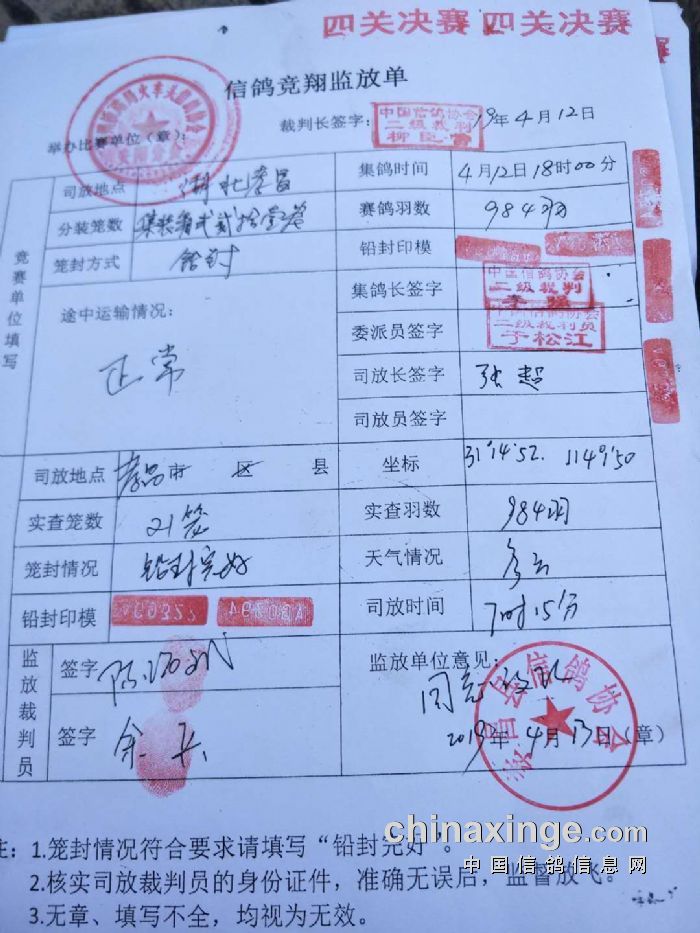 四关决赛 四关决赛
信鸽竞翔监放单
举办比赛单位(章): 裁判长签字: 19年4月12日
中国信鸽协会
二级裁判
竞赛单位填写
司放地点 集鸽时间 4月12日18时00分
分装笼数 赛鸽羽数 984羽
笼封方式 铅封 铅封印模
途中运输情况: 正常
集鸽长签字 中国信鸽协会
二级裁判
委派员签字 中国信鸽协会
二级裁判员
于松江
司放长签字 张超
司放员签字
司放地点 孝昌市 区 县 坐标 31°14'52. 114°1'50
实查笼数 21笼 实查羽数 984羽
笼封情况 铅封完好 天气情况 多云
铅封印模 司放时间 7时15分
监放裁判员
签字
签字 余兵
监放单位意见:
同意放飞
2019年4月13日(章)
注: 1.笼封情况符合要求请填写“铅封完好”。
2.核实司放裁判员的身份证件,准确无误后,监督放飞。
3.无章、填写不全,均视为无效。
chinaxinge.com
中国信鸽信息网